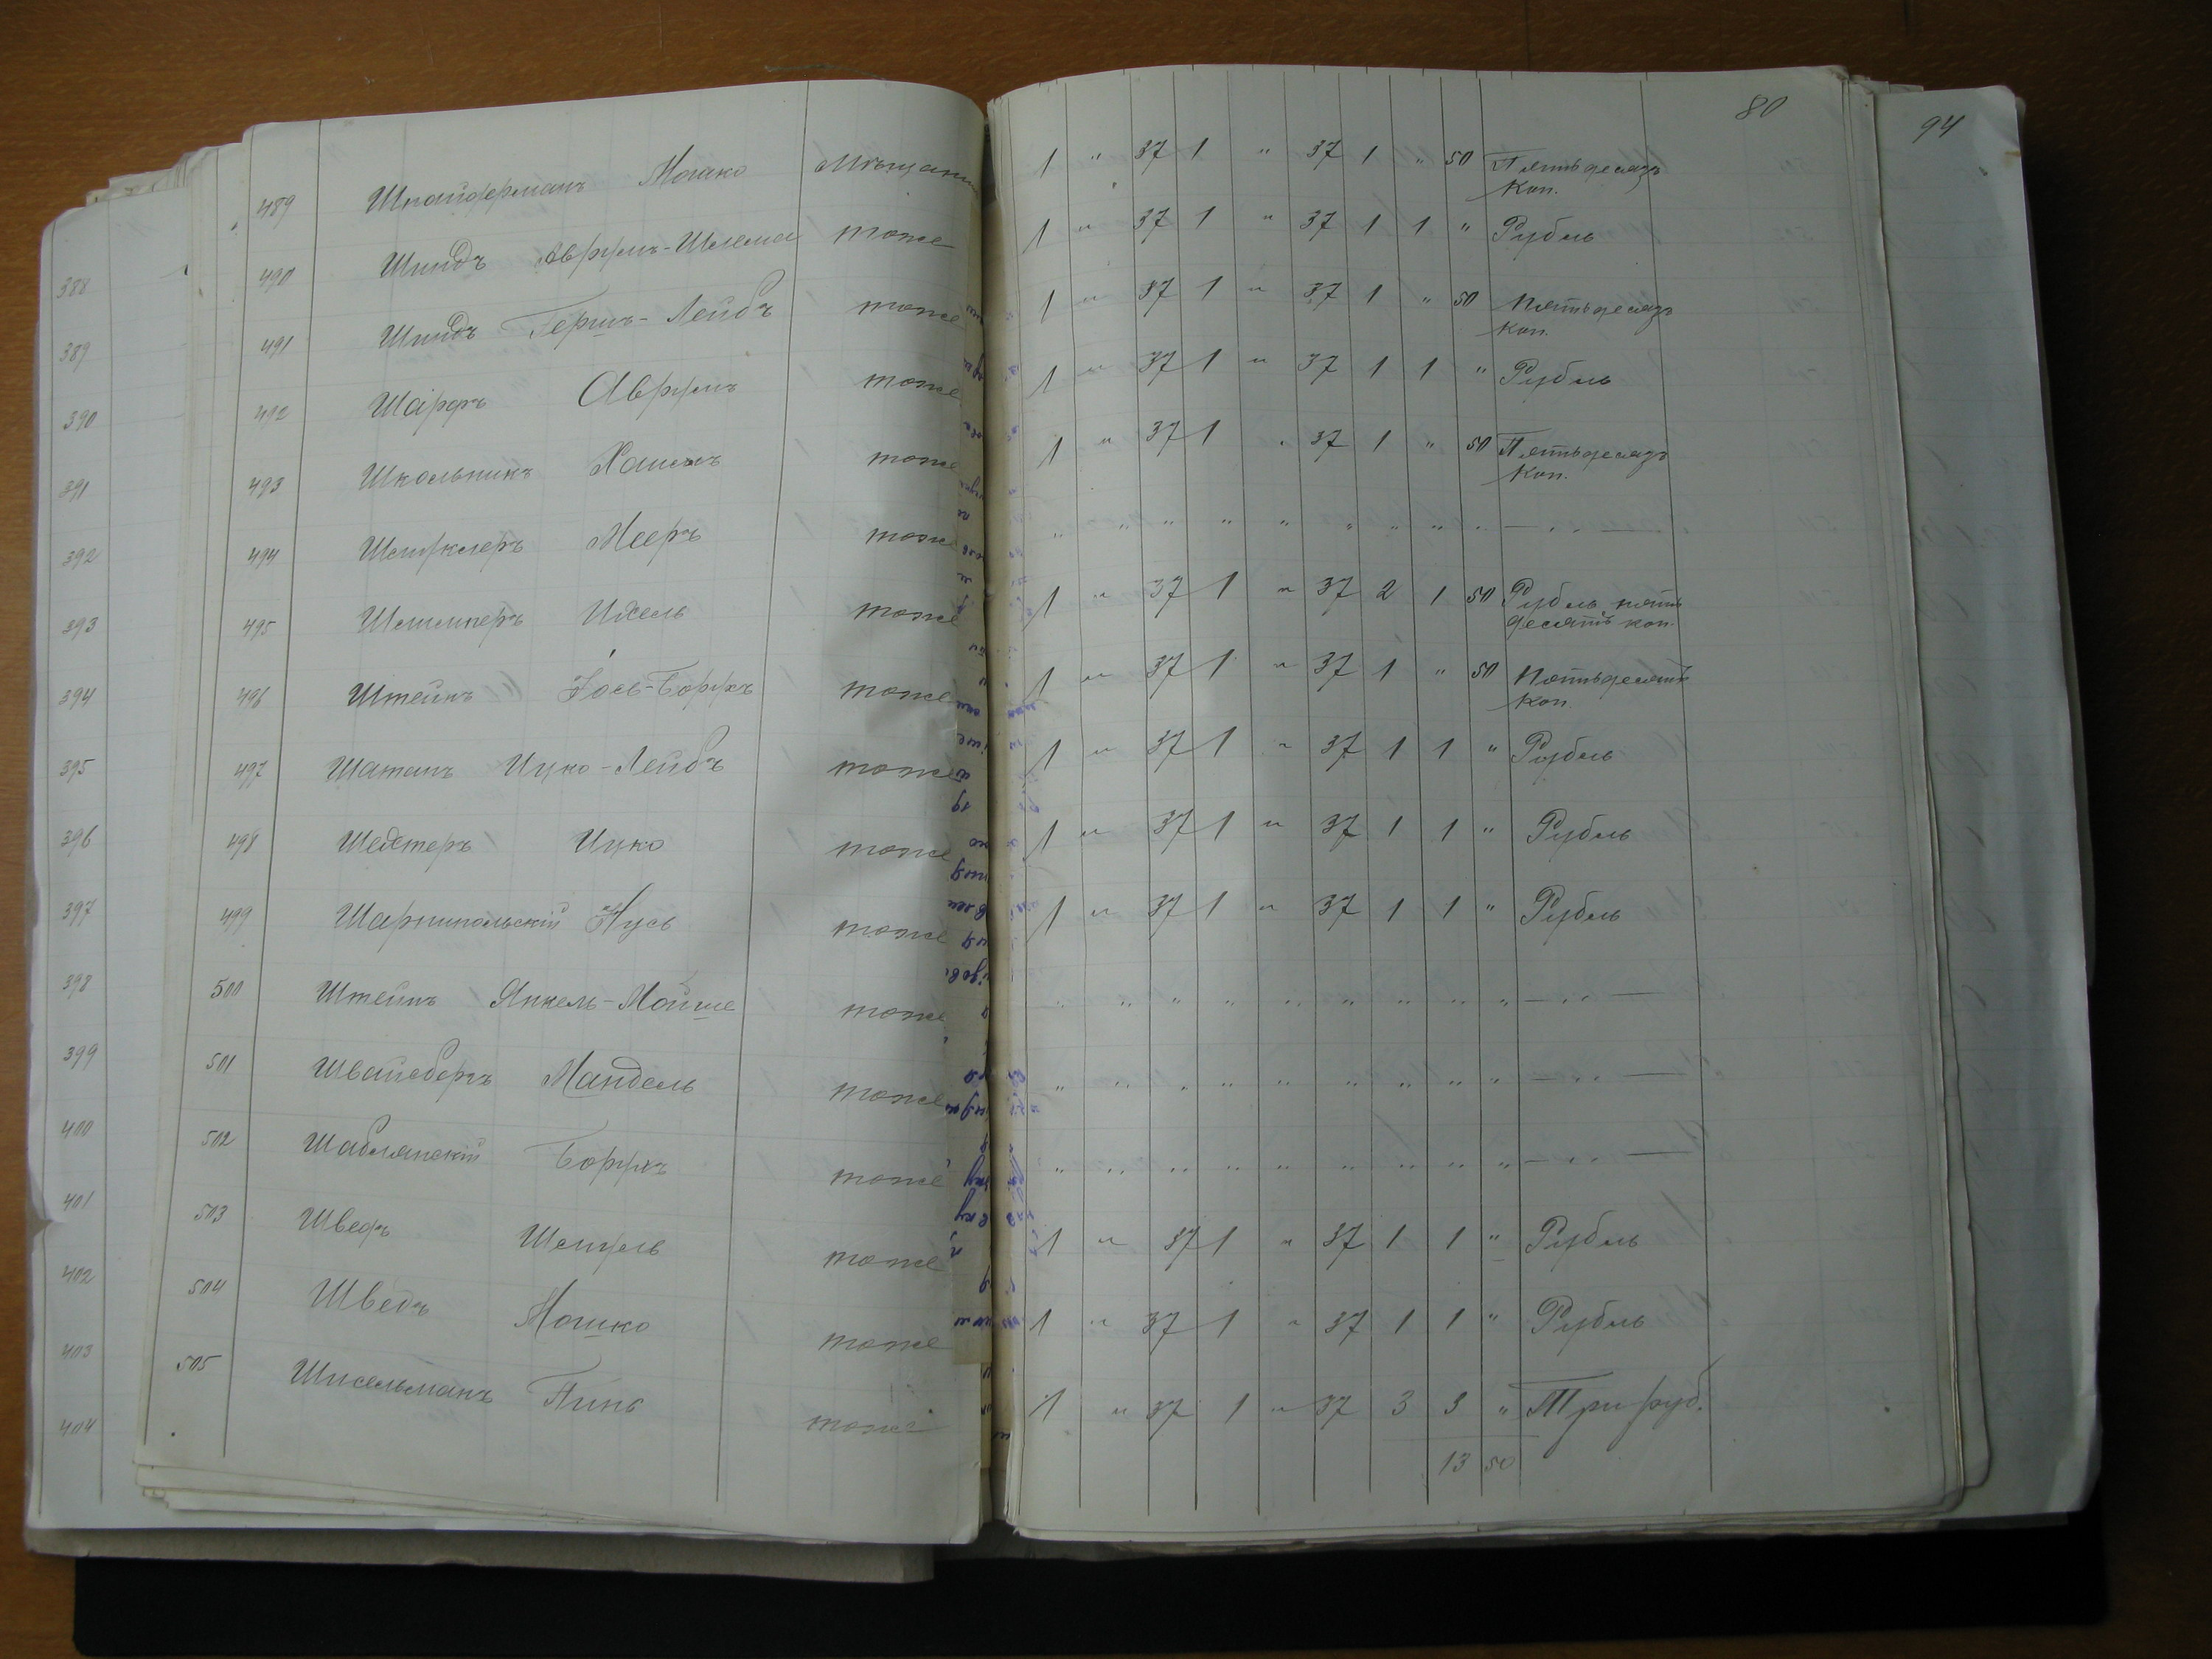 80
94
489 Шнайдерманъ Мошко Мѣщанинъ 1 " 37 1 " 37 1 " 50 Пятьдесятъ
Коп.
388
490 Шиндъ Аврумъ-Шлема тоже 1 " 37 1 " 37 1 1 " Рубль
389
491 Шиндъ Гершъ-Лейбъ тоже 1 " 37 1 " 37 1 " 50 Пятьдесятъ
Коп.
390
492 Шарфъ Аврумъ тоже 1 " 37 1 " 37 1 1 " Рубль
391
493 Школьникъ Хаимъ тоже 1 " 37 1 " 37 1 " 50 Пятьдесятъ
Коп.
392
494 Мееръ тоже " " " " " " " " " — " —
393
495 Идель тоже 1 " 37 1 " 37 2 1 50 Рубль пять
десятъ коп.
394
496 Штейнъ Іось-Борухъ тоже 1 " 37 1 " 37 1 " 50 Пятьдесятъ
Коп.
395
497 Шатанъ Ицко-Лейбъ тоже 1 " 37 1 " 37 1 1 " Рубль
396
498 Шехтеръ Ицко тоже 1 " 37 1 " 37 1 1 " Рубль
397
499 Нусь тоже 1 " 37 1 " 37 1 1 " Рубль
398
500 Штейнъ Янкель-Мойше тоже " " " " " " " " " — " —
399
501 Швайсбергъ Мандель тоже " " " " " " " " " — " —
400
502 Шаблянскій Борухъ тоже " " " " " " " " " — " —
401
503 Шведъ Шмуль тоже 1 " 37 1 " 37 1 1 " Рубль
402
504 Шведъ Мошко тоже 1 " 37 1 " 37 1 1 " Рубль
403
505 Шисельманъ Пинь тоже 1 " 37 1 " 37 3 3 " Три руб.
404
13 50